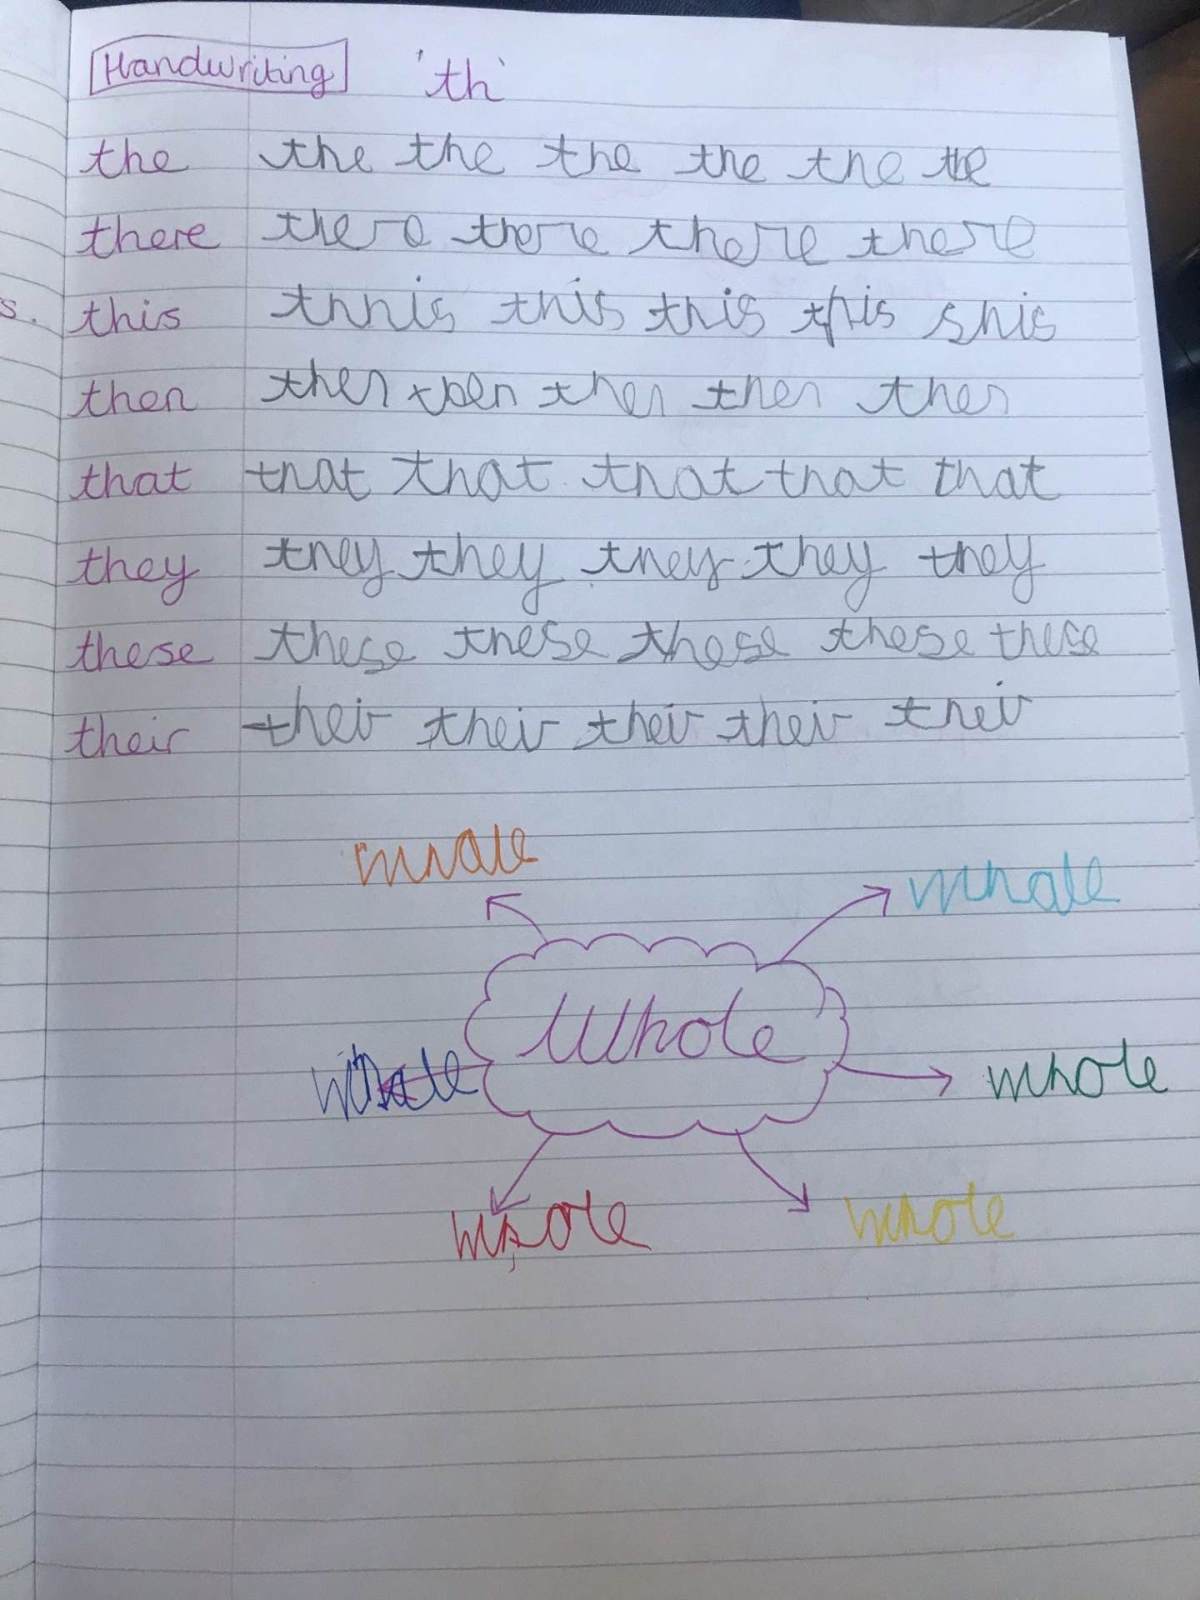 Handwriting 'th'
the the the the the the the
there there there there there
s. this thhis this this this shis
then then then then then then
that that that that that that
they they they they they they
these these these these these these
their their their their their their
whole whole
Whole
whole whole
whole whole